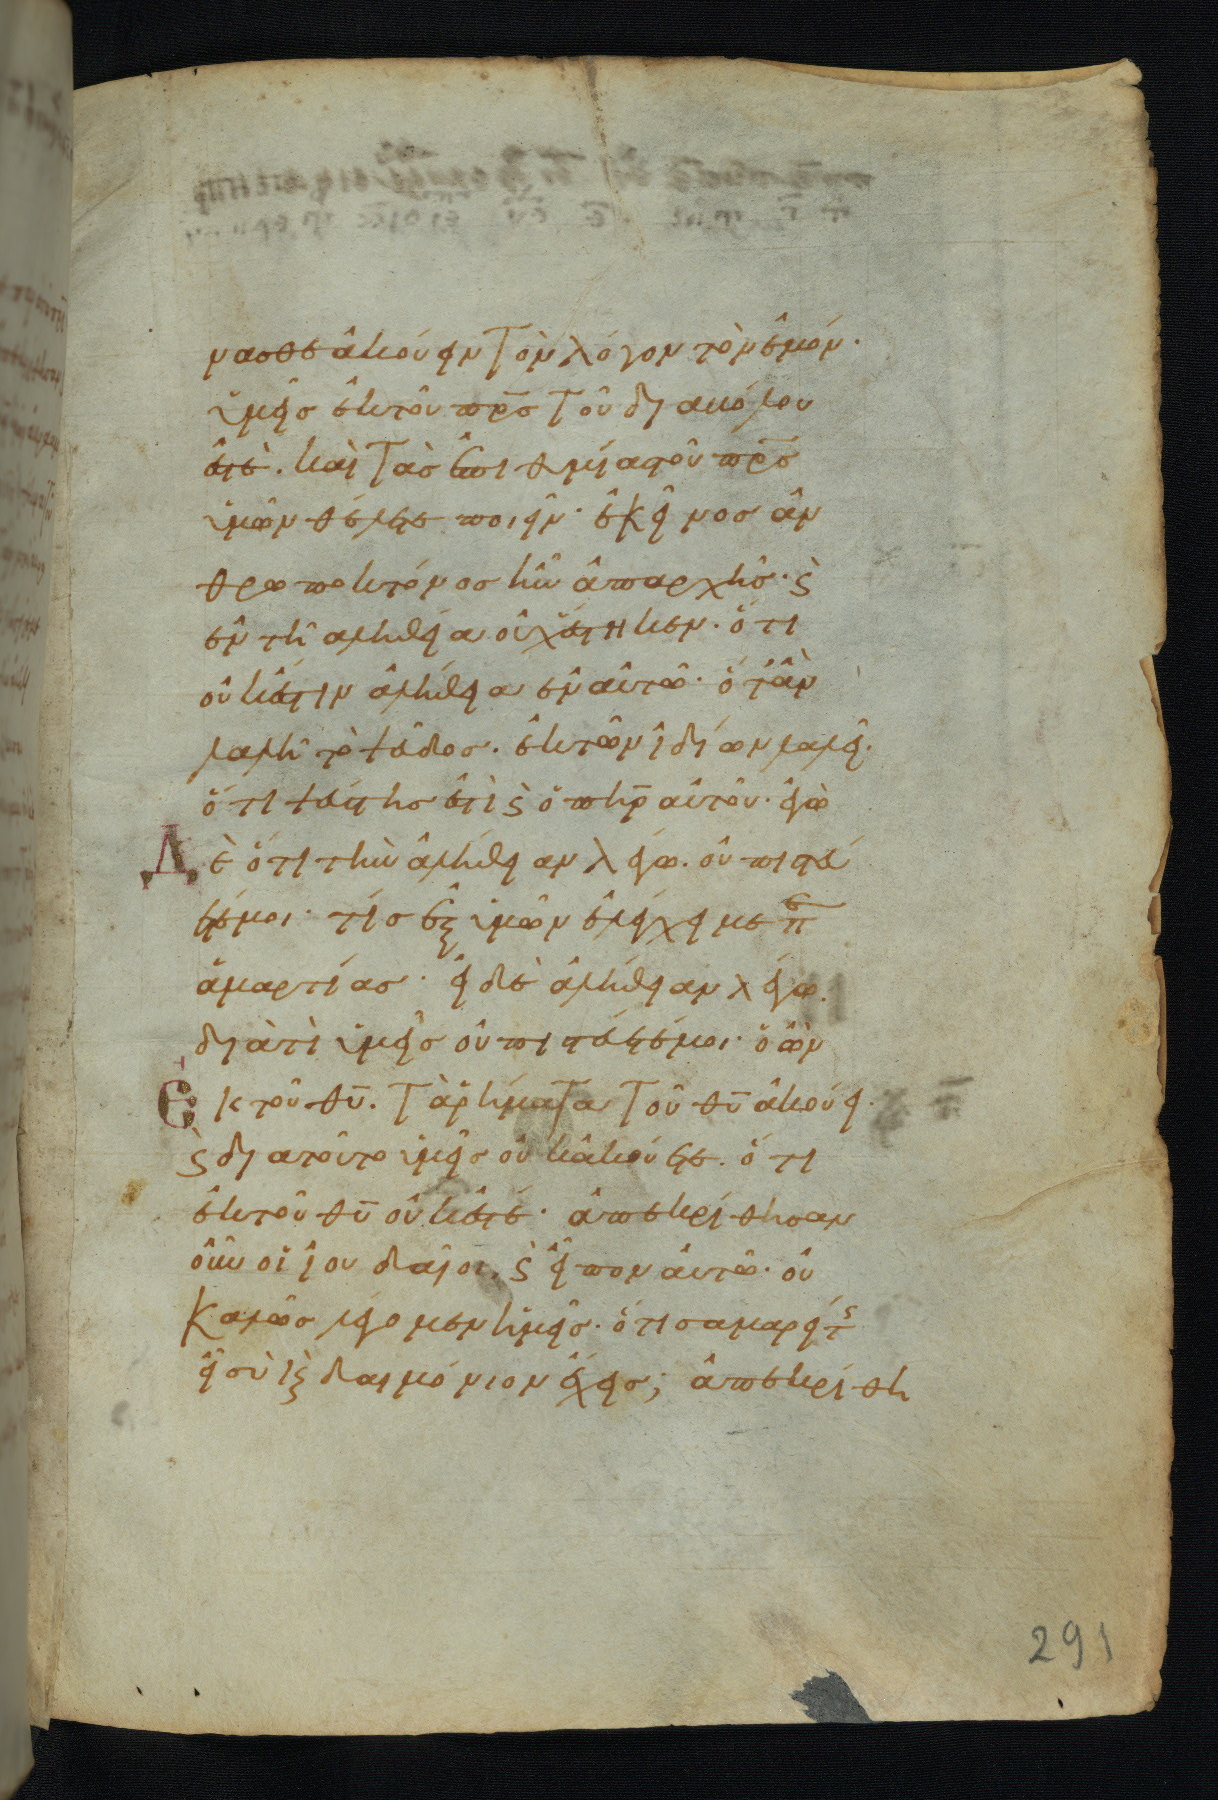 νασθε ἀκούειν τὸν λόγον τὸν ἐμόν·
ὑμεῖς ἐκ τοῦ πρ̅σ τοῦ διαβόλου
ἐστὲ. καὶ τὰς ἐπιθυμίας τοῦ πρ̅σ
ὑμῶν θέλετε ποιεῖν· ἐκεῖνος ἀν
θρωποκτόνος ἦν ἀπαρχῆς· ϛ̀
ἐν τῆ αληθεία οὐχ ἕστηκεν. ὅτι
οὐκ ἔστιν ἀλήθεια ἐν αὐτῶ· ὅτἂν
λαλῆ τὸ ψεῦδος. ἐκ τῶν ἰδίων λαλεῖ·
ὅτι ψεύστης ἐστὶ ϛ̀ ὁ πηρ̅ αὐτοῦ· ἐγὼ
Δὲ ὅτι τὴν ἀλήθειαν λέγω. οὐ πιστεύ
ετέ μοι· τίς ἐξ ὑμῶν ἐλέγχει με πε
ἁμαρτίας· εἰ δὲ ἀλήθειαν λέγω.
διατὶ ὑμεῖς οὐ πιστεύετέ μοι· ὁ ὢν
Ἐκ τοῦ θυ̅. τὰ ῥήματα τοῦ θυ̅ ἀκούει·
ϛ̀ διατοῦτο ὑμεῖς οὐκ ἀκούετε. ὅτι
ἐκ τοῦ θυ̅ οὐκ ἐστέ· ἀπεκρίθησαν
οὖν οἱ ἰουδαῖοι, ϛ̀ εἶπον αὐτῶ· οὐ
καλῶς λέγομεν ἡμεῖς· ὅτι σαμαρείτς
εἶ σὺ ϛ̀ δαιμόνιον ἔχεις; ἀπεκρίθη
291